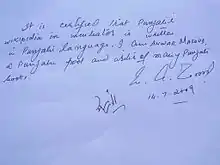 It is certified that Punjabi
wikipedia in incubator is written
in Punjabi language. I am Anwar Masood,
a Punjabi poet and writer of many Punjabi
books.
14.7.2009